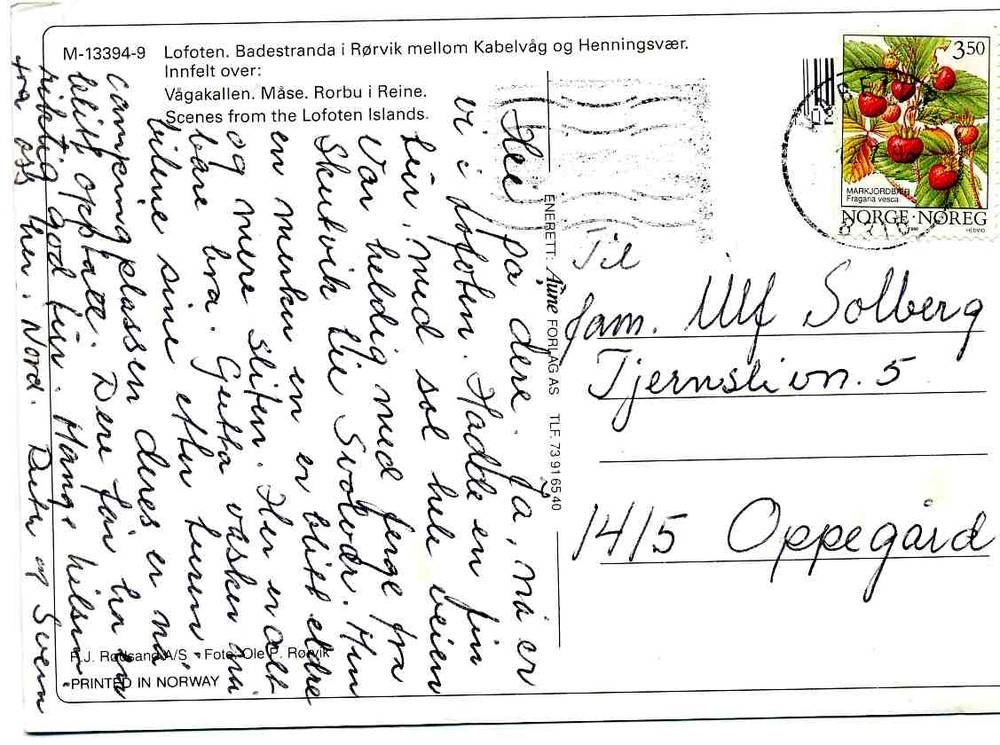 M-13394-9 Lofoten. Badestranda i Rørvik mellom Kabelvåg og Henningsvær.
Innfelt over:
Vågakallen. Måse. Rorbu i Reine.
Scenes from the Lofoten Islands.
Hei på dere. Ja, nå er
vi i Lofoten. Hadde en fin
tur, med sol hele veien
Var heldig med ferge fra
Skutvik til Svolvær. Hun
en merker en er blitt eldre
og mere sliten. Her er alt
bare bra. Gutta vasker nå
bilene sine etter turen
campingplassen deres er nå
blitt opptatt. Dere får ha en
riktig god tur. Mange hilsen
fra oss her i Nord. og Svenn
ENERETT: Aune FORLAG AS TLF. 73 91 65 40
3.50
MARKJORDBÆR
Fragaria vesca
NORGE·NOREG
Til
fam. Ulf Solberg
Tjernslivn. 5
1415 Oppegård
F.J. Rødsand A/S - Foto: Ole P. Rørvik
PRINTED IN NORWAY